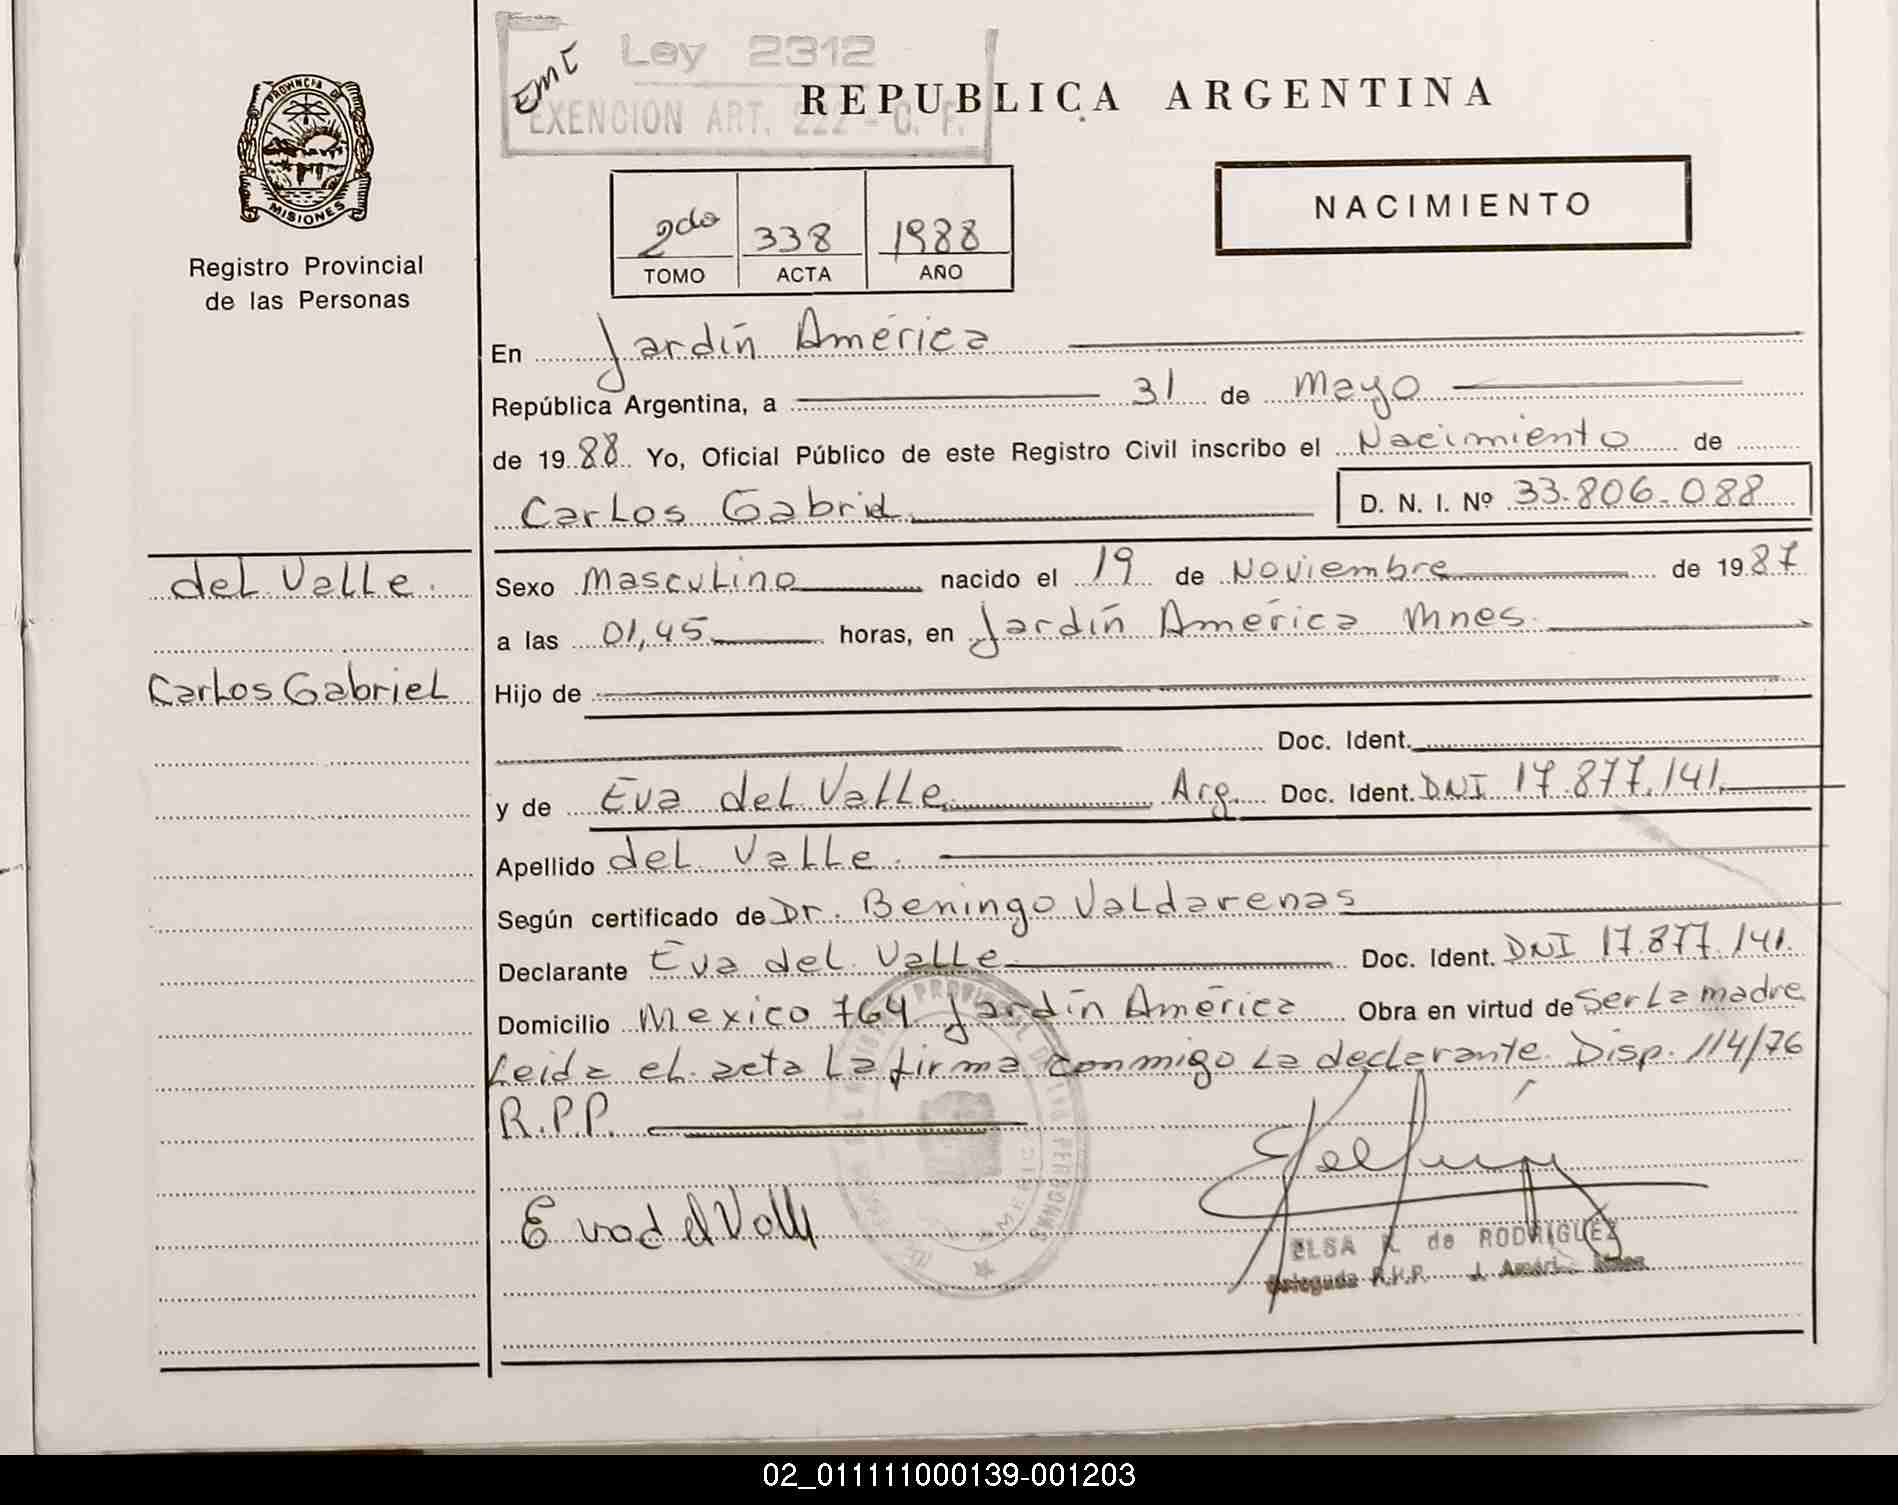 Ley 2312
EMC
EXENCION ART. 222 - C. F.
REPUBLICA ARGENTINA
PROVINCIA DE
MISIONES
Registro Provincial
de las Personas
NACIMIENTO
2do 338 1988
TOMO ACTA AÑO
En Jardín América
República Argentina, a 31 de Mayo
de 1988 Yo, Oficial Público de este Registro Civil inscribo el Nacimiento de
Carlos Gabriel D. N. I. Nº 33.806.088
del Valle.
Carlos Gabriel
Sexo Masculino nacido el 19 de Noviembre de 1987
a las 01,45 horas, en Jardín América Mnes.
Hijo de
Doc. Ident.
y de Eva del Valle Arg. Doc. Ident. DNI 17.877.141.
Apellido del Valle.
Según certificado de Dr. Beningo Valdarenas
Declarante Eva del Valle Doc. Ident. DNI 17.877.141.
Domicilio Mexico 764 Jardín América Obra en virtud de Ser La madre
Leida el acta La firma conmigo La declarante. Disp. 114/76
R.P.P.
Eva del Valle
ELSA de RODRIGUEZ
Delegada R.P.P. J. Améri Mnes
02_011111000139-001203